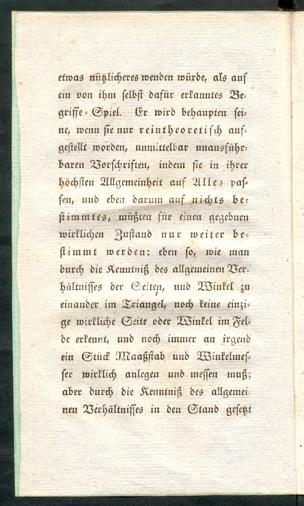 etwas nützlicheres wenden würde, als auf
ein von ihm selbst dafür erkanntes Be-
griffe-Spiel. Er wird behaupten sei-
ne, wenn sie nur reintheoretisch auf-
gestellt worden, unmittelbar unausführ-
baren Vorschriften, indem sie in ihrer
höchsten Allgemeinheit auf Alles pas-
sen, und eben darum auf nichts be-
stimmtes, müßten für einen gegebnen
wirklichen Zustand nur weiter be-
stimmt werden: eben so, wie man
durch die Kenntniß des allgemeinen Ver-
hältnisses der Seiten, und Winkel zu
einander im Triangel, noch keine einzi-
ge wirkliche Seite oder Winkel im Fel-
de erkennt, und noch immer an irgend
ein Stück Maaßstab und Winkelmes-
ser wirklich anlegen und messen muß;
aber durch die Kenntniß des allgemei-
nen Verhältnisses in den Stand gesetzt